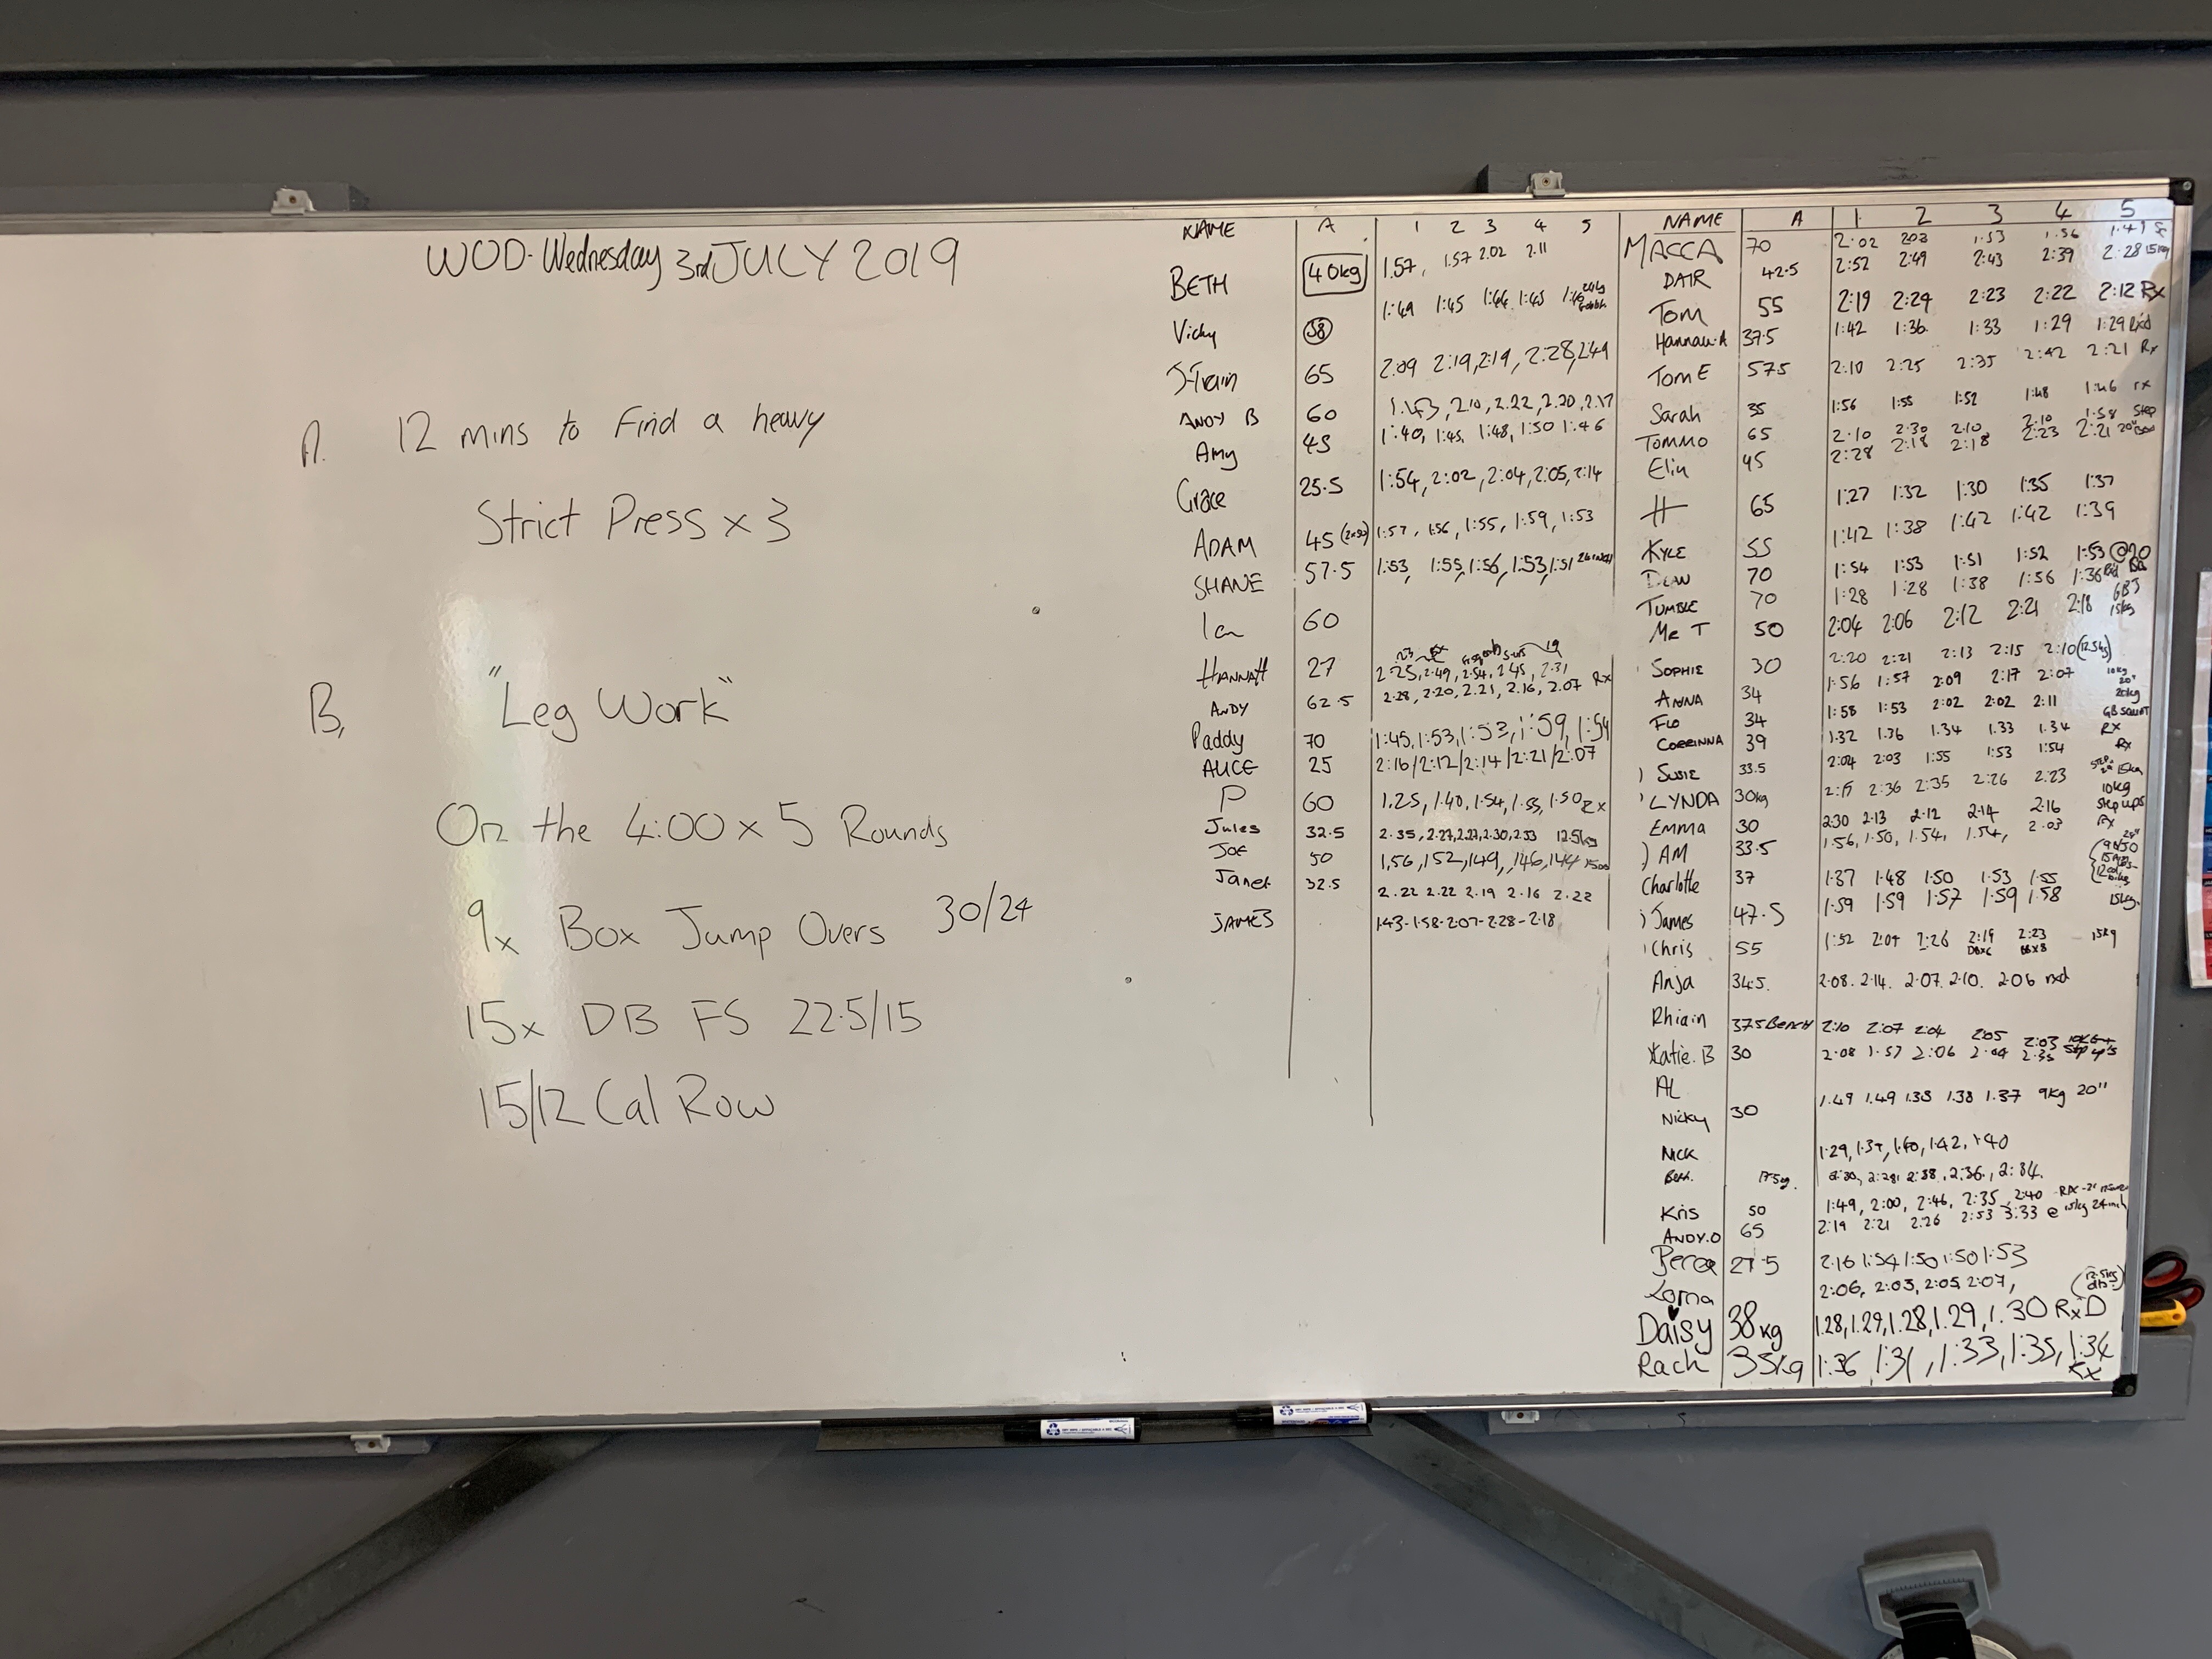 WOD-Wednesday 3rd JULY 2019
A. 12 mins to Find a heavy
Strict Press x 3
B, "Leg Work"
On the 4:00 x 5 Rounds
9x Box Jump Overs 30/24
15x DB FS 22.5/15
15/12 Cal Row
NAME A 1 2 3 4 5
BETH 40kg 1.57, 1.57 2.02 2.11
Vicky 38 1:49 1:45 1:44 1:43
J-Train 65 2:09 2:19, 2:19, 2:28, 2:49
ANDY B 60 1.43, 2.10, 2.22, 2.20, 2.17
Amy 45 1:40, 1:45, 1:48, 1:50 1:46
Grace 25.5 1:54, 2:02, 2:04, 2:05, 2:14
ADAM 45 1:57, 1:56, 1:55, 1:59, 1:53
SHANE 57.5 1:53, 1:55, 1:56, 1:53, 1:51
Ian 60
HANNAH 27 2:25, 2:49, 2:54, 2:45, 2:31
ANDY 62.5 2.28, 2.20, 2.21, 2.16, 2.07 Rx
Paddy 70 1:45, 1:53, 1:53, 1:59, 1:54
ALICE 25 2:16/2:12/2:14/2:21/2:07
P 60 1.25, 1.40, 1.54, 1.55, 1.50 Rx
Jules 32.5 2.35, 2.27, 2.27, 2.30, 2.33 12.5kg
JOE 50 1,56, 152, 149, 146, 144
Janet 32.5 2.22 2.22 2.19 2.16 2.22
JAMES 1.43-1.58-2.07-2.28-2.18
NAME A 1 2 3 4 5
MACCA 70 2:02 203 1:53 1:56
DAIR 42.5 2:52 2:49 2:43 2:39 2:28 15kg
Tom 55 2:19 2:24 2:23 2:22 2:12 Rx
Hannah.A 37.5 1:42 1:36 1:33 1:29 1:29 Rxd
Tom E 57.5 2:10 2:25 2:35 2:42 2:21 Rx
Sarah 35 1:56 1:55 1:52 1:48 1:46 rx
TOMMO 65 2:10 2:30 2:10 2:10 1:58 Step
Elin 45 2:28 2:18 2:18 2:23 2:21 20" Box
H 65 1:27 1:32 1:30 1:35 1:37
KYLE 55 1:42 1:38 1:42 1:42 1:39
DEAN 70 1:54 1:53 1:51 1:52 1:53 @20
TUMBLE 70 1:28 1:28 1:38 1:56 1:36 Rxd
Mr T 50 2:04 2:06 2:12 2:21 2:18 15kg
SOPHIE 30 2:20 2:21 2:13 2:15 2:10 (12.5kg)
ANNA 34 1:56 1:57 2:09 2:17 2:07 10kg 20"
FLO 34 1:58 1:53 2:02 2:02 2:11 20kg GB SQUAT
CORRINNA 39 1.32 1.36 1.34 1.33 1.34 Rx
SUSIE 33.5 2:04 2:03 1:55 1:53 1:54 Rx
LYNDA 30kg 2:36 2:35 2:26 2:23 15kg
Emma 30 2:30 2:13 2:12 2:14 2:16 10kg step ups
AM 33.5 1:56, 1:50, 1:54, 1:54, 2:03 Rx
Charlotte 37 1:37 1:48 1:50 1:53 1:55
James 47.5 1:59 1:59 1:57 1:59 1:58 15kg.
Chris 55 1:52 2:04 2:26 2:19 2:23 15kg
DBx6 BBx8
Anja 34.5. 2.08. 2.14. 2.07. 2.10. 2.06 rxd
Rhiain 37.5 Bench 2:10 2:07 2:04 2:05 2:03
Katie.B 30 2:08 1:57 2:06 2:04 2:35 step up's
AL
Nicky 30 1.49 1.49 1.38 1.38 1.37 9kg 20"
NICK 1:29, 1:37, 1:40, 1:42, 1:40
Beth. 17.5kg. 2:30, 2:28, 2:38, 2:36, 2:34.
Kris 50 1:49, 2:00, 2:46, 2:35, 2:40
ANDY.O 65 2:19 2:21 2:26 2:53 3:33 @ 15kg 24 inch
27.5 2.16 1:54 1:50 1:50 1:53
Lorna 2:06, 2:03, 2:05, 2:07, (12.5kg db's)
Daisy 38kg 1.28, 1.29, 1.28, 1.29, 1.30 RxD
Rach 35kg 1:36 1:31, 1:33, 1:35, 1:34
Rx